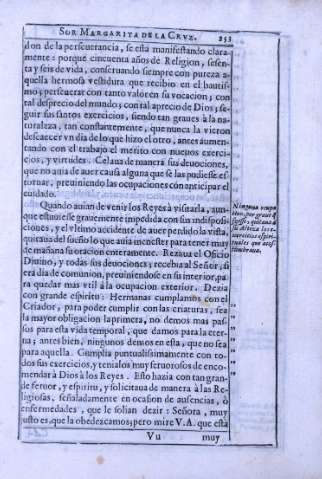 SOR MARGARITA DE LA CRVZ. 253
don de la perseuerancia, se esta manifestando clara-
mente: porque cincuenta años de Religion, sesen-
ta y seis de vida, conseruando siempre con pureza a-
quella hermosa vestidura que recibio en el bautis-
mo; perseuerar con tanto valor en su vocacion; con
tal desprecio del mundo; con tal aprecio de Dios; se-
guir sus santos exercicios, siendo tan graues à la na-
turaleza, tan constantemente, que nunca la vieron
descaecer vn dia de lo que hizo el otro, antes aumen-
tando con el trabajo el merito con nueuos exerci-
cios, y virtudes. Celaua de manera sus deuociones,
que no auia de auer causa alguna que se las pudiesse es-
toruar, preuiniendo las ocupaciones con anticipar el
cuidado.
Quando auian de venir los Reyes à visitarla, aun-
que estuuiesse grauemente impedida con sin indisposi-
ciones, y el vltimo accidente de auer perdido la vista,
quitaua del sueño lo que auia menester para tener muy
de mañana su oracion enteramente. Rezaua el Oficio
Diuino, y todas sus deuociones; recebia al Señor, si
era dia de comunion, preuiniendose en su interior, pa-
ra quedar mas vtil à la ocupacion exterior. Dezia
con grande espiritu: Hermanas cumplamos con el
Criador, para poder cumplir con las criaturas, sea
la mayor obligacion la primera, no demos mas pas-
sos para esta vida temporal, que damos para la eter-
na; antes bien, ningunos demos en esta, que no sea
para aquella. Cumplia puntualissimamente con to-
dos sus exercicios, y tenialos muy feruorosos de enco-
mendar à Dios à los Reyes. Esto hazia con tan gran-
de feruor, y espiritu, y solicitaua de manera à las Re-
ligiosas, señaladamente en ocasion de ausencias, ò
enfermedades, que le solian dezir: Señora, muy
justo es, que la obedezcamos; pero mire V.A. que esta
Vu muy
Ninguna ocupa-
cion, por graue q̃
fuesse, quitaua a
su Alteza los e-
xercicios espiri-
tuales que acos-
tumbraua.